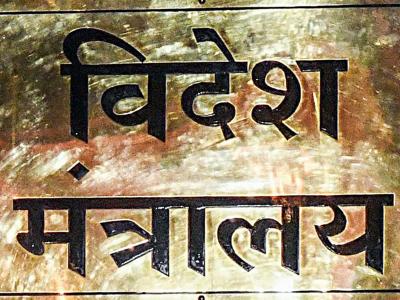 विदेश
मंत्रालय